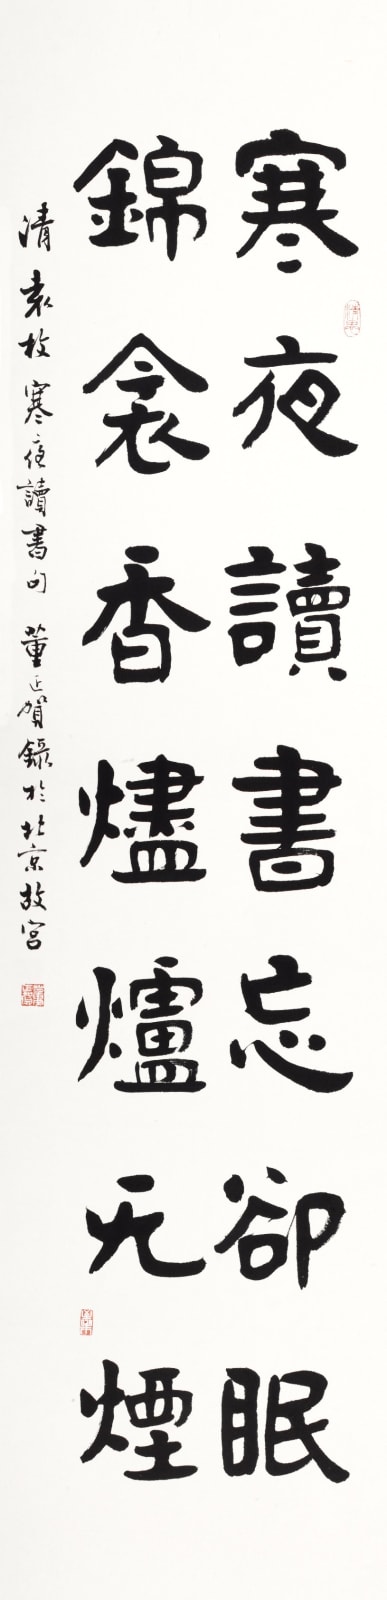 寒夜讀書忘卻眠
錦衾香燼爐无煙
清袁枚寒夜讀書句 董正賀錄於北京故宮